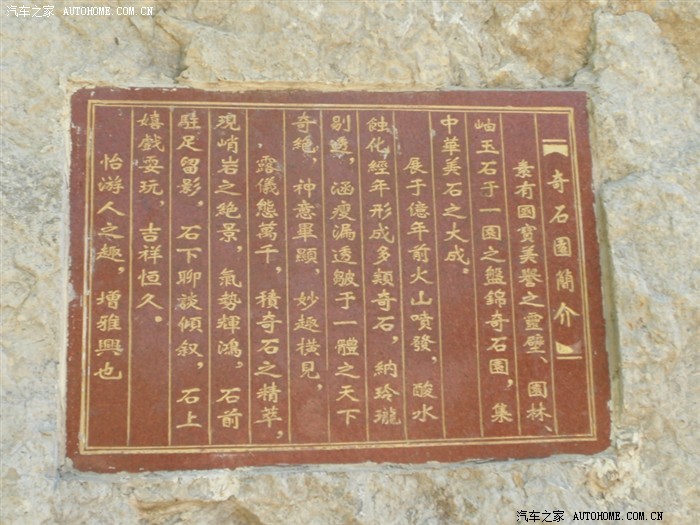 汽车之家 AUTOHOME.COM.CN
【奇石園簡介】
素有國寶美譽之靈壁、園林、
岫玉石于一園之盤錦奇石園，集
中華美石之大成。
展于億年前火山噴發，酸水
蝕化經年形成多類奇石，納玲瓏
剔透，涵瘦漏透皴于一體之天下
奇絶，神意畢顯，妙趣橫見，
露儀態萬千，積奇石之精萃，
現峭岩之絶景，氣勢輝鴻，石前
駐足留影，石下聊談傾叙，石上
嬉戲耍玩，吉祥恒久。
怡游人之趣，增雅興也
汽车之家 AUTOHOME.COM.CN